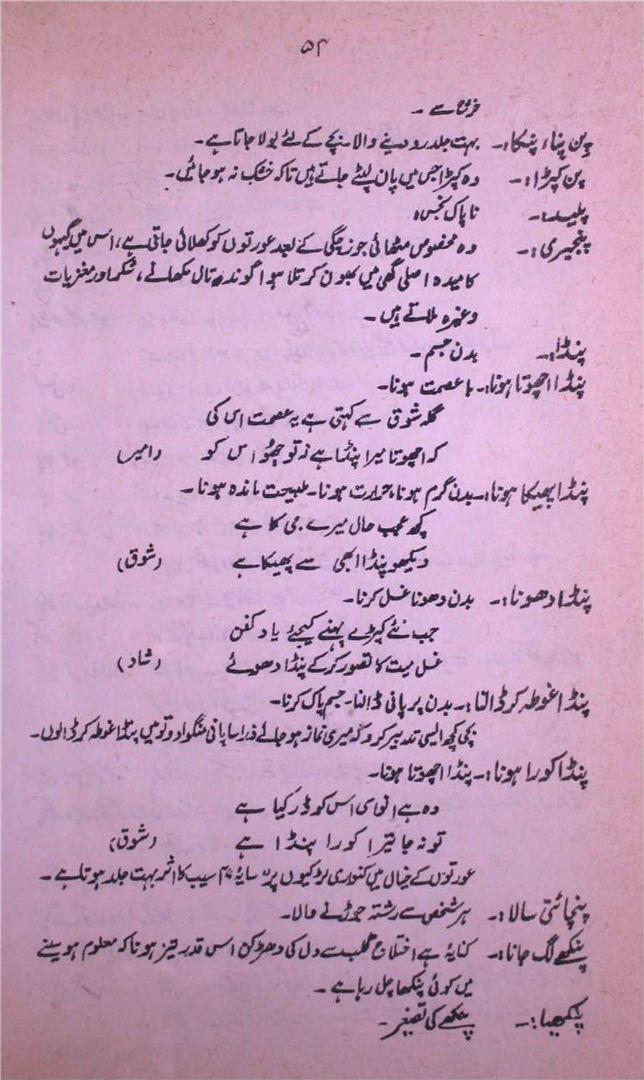 ۵۴
خرچ سے ۔
پن پنا، پنکا:۔ بہت جلد رو دینے والا۔ بچے کے لئے بولا جاتا ہے۔
پن کپڑا:۔ وہ کپڑا جس میں پان لپیٹے جاتے ہیں تاکہ خشک نہ ہو جائیں۔
پلید:۔ ناپاک نجس۔
پنجیری:۔ وہ مخصوص مٹھائی جو زچگی کے بعد عورتوں کو کھلائی جاتی ہے، اس میں گیہوں
کا میدہ اصلی گھی میں بھون کر تلا ہوا گوند تال مکھانے، شکر اور مغزیات
وغیرہ ملاتے ہیں ۔
پنڈا:۔ بدن جسم ۔
پنڈا اچھوتا ہونا:۔ با عصمت ہونا۔
گلہ شوق سے کہتی ہے یہ عصمت اس کی
کہ اچھوتا میرا پنڈا ہے نہ تو چھو اس کو (امیر)
پنڈا پھیکا ہونا:۔ بدن گرم ہونا، حرارت ہونا۔ طبیعت ماندہ ہونا ۔
کچھ عجب حال میرے جی کا ہے
دیکھو پنڈا ابھی سے پھیکا ہے (شوق)
پنڈا دھونا:۔ بدن دھونا غسل کرنا۔
جب نئے کپڑے پہنے کیجئے یاد کفن
غسل میت کا تصور کر کے پنڈا دھوئے (شاد)
پنڈا غوطہ کر ڈالنا:۔ بدن پر پانی ڈالنا۔ جسم پاک کرنا۔
بچی کچھ ایسی تدبیر کرو کہ میری نماز ہو جائے ذرا سا پانی منگوا دو تو میں پنڈا غوطہ کر ڈالوں۔
پنڈا کورا ہونا:۔ پنڈا اچھوتا ہونا۔
وہ ہے انوسی اس کو ڈر کیا ہے
تو نہ جا تیرا کورا پنڈا ہے (شوق)
عورتوں کے خیال میں کنواری لڑکیوں پر سایہ آسیب کا اثر بہت جلد ہوتا ہے ۔
پنچائتی سالا:۔ ہر شخص سے رشتہ جوڑنے والا۔
پنکھے لگ جانا:۔ کنایہ ہے اختلاج قلب سے دل کی دھڑکن اس قدر تیز ہونا کہ معلوم ہو سینے
میں کوئی پنکھا چل رہا ہے ۔
پنکھیا:۔ پنکھے کی تصغیر۔